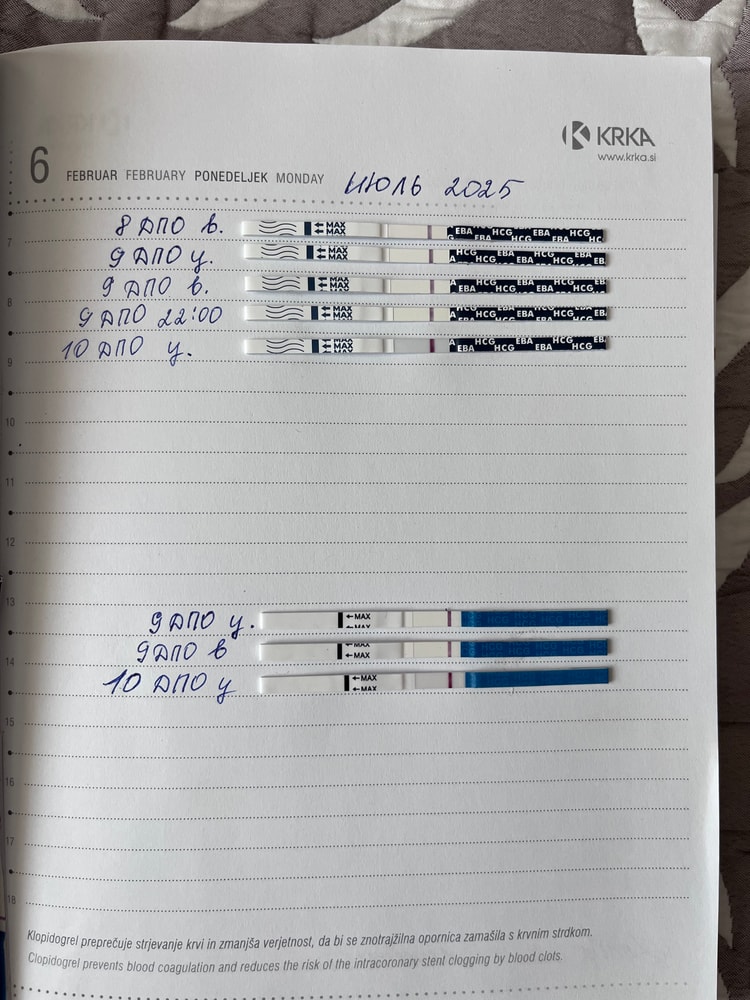 KRKA
www.krka.si
6 FEBRUAR FEBRUARY PONEDELJEK MONDAY ИЮЛЬ 2025
7
8 ДПО в. MAX MAX EBA HCG EBA HCG
9 ДПО у. MAX MAX HCG EBA HCG EBA
8
9 ДПО в. MAX MAX EBA HCG EBA HCG
9 ДПО 22:00 MAX MAX HCG EBA HCG EBA
9
10 ДПО у. MAX MAX HCG EBA HCG EBA HCG
10
11
12
13
9 ДПО у. MAX
9 ДПО в MAX MAX
14
10 ДПО у MAX MAX
15
16
17
18
Klopidogrel preprečuje strjevanje krvi in zmanjša verjetnost, da bi se znotrajžilna opornica zamašila s krvnim strdkom.
Clopidogrel prevents blood coagulation and reduces the risk of the intracoronary stent clogging by blood clots.